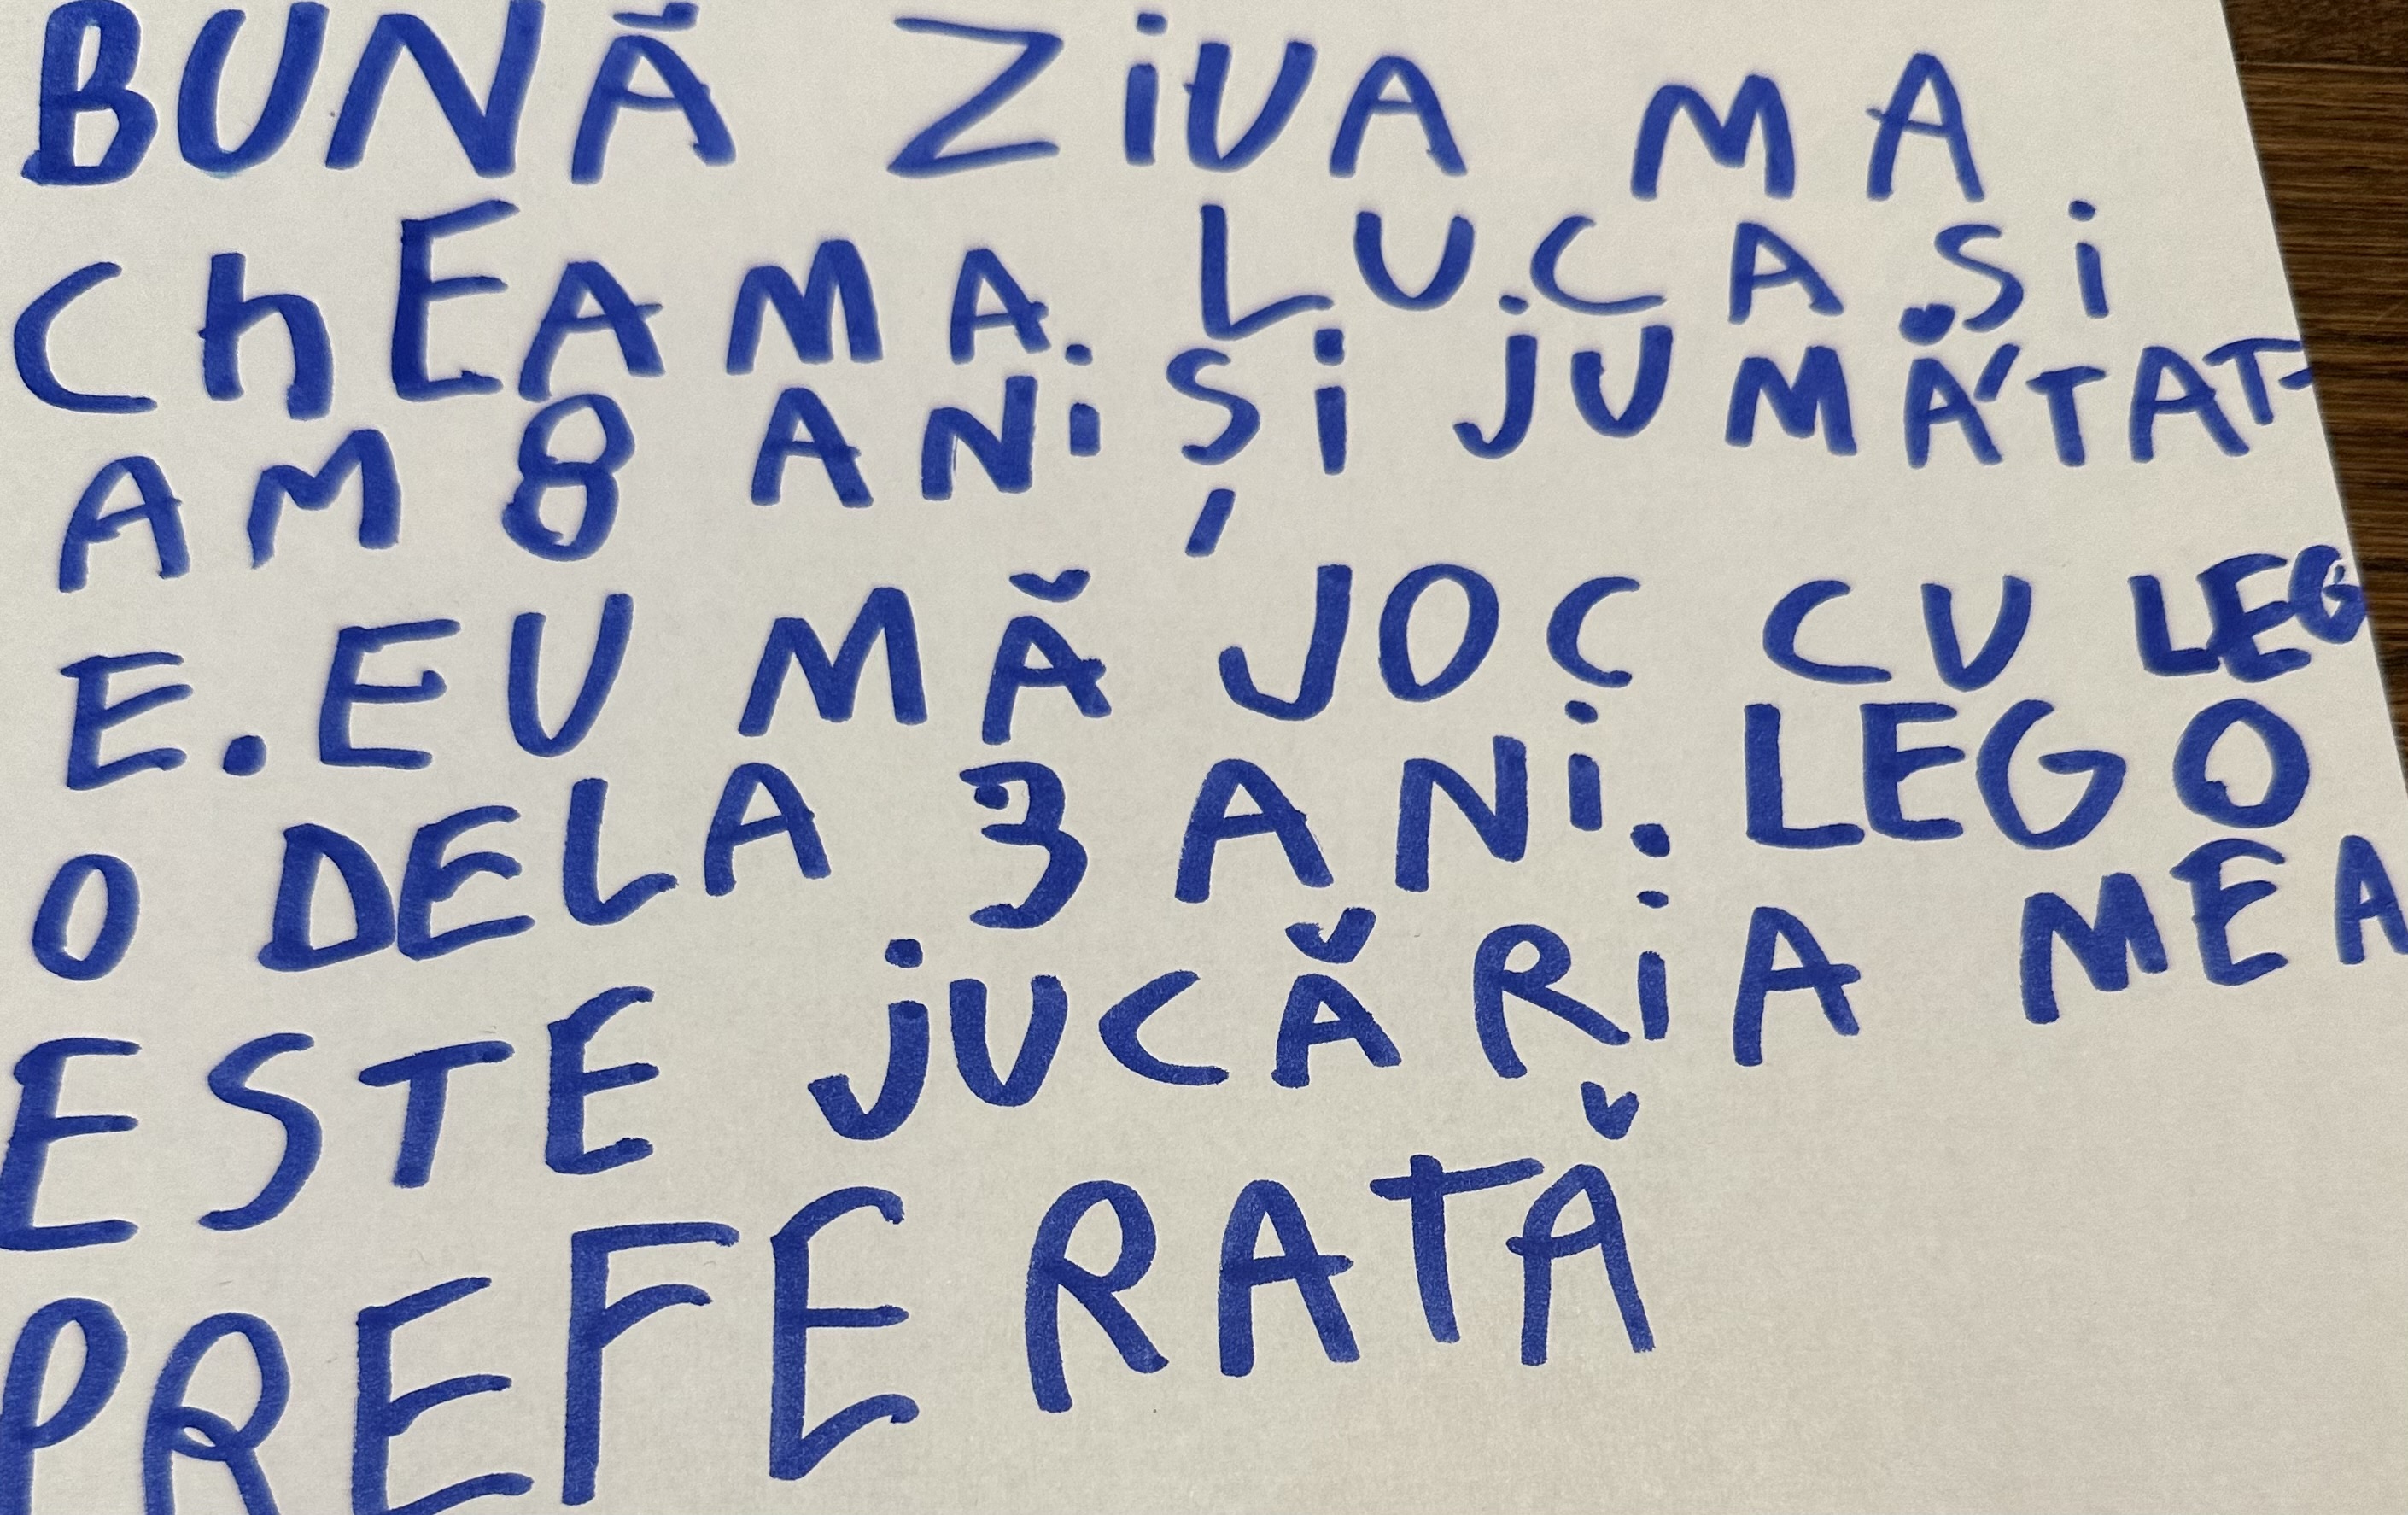 BUNĂ ZiUA MA
ChEAMA LUCA Si
AM 8 ANi Și jUMĂTAT-
E. EU MĂ JOC CU LEG
O DELA 3 ANi. LEGO
ESTE jUCĂRiA MEA
PREFERATĂ